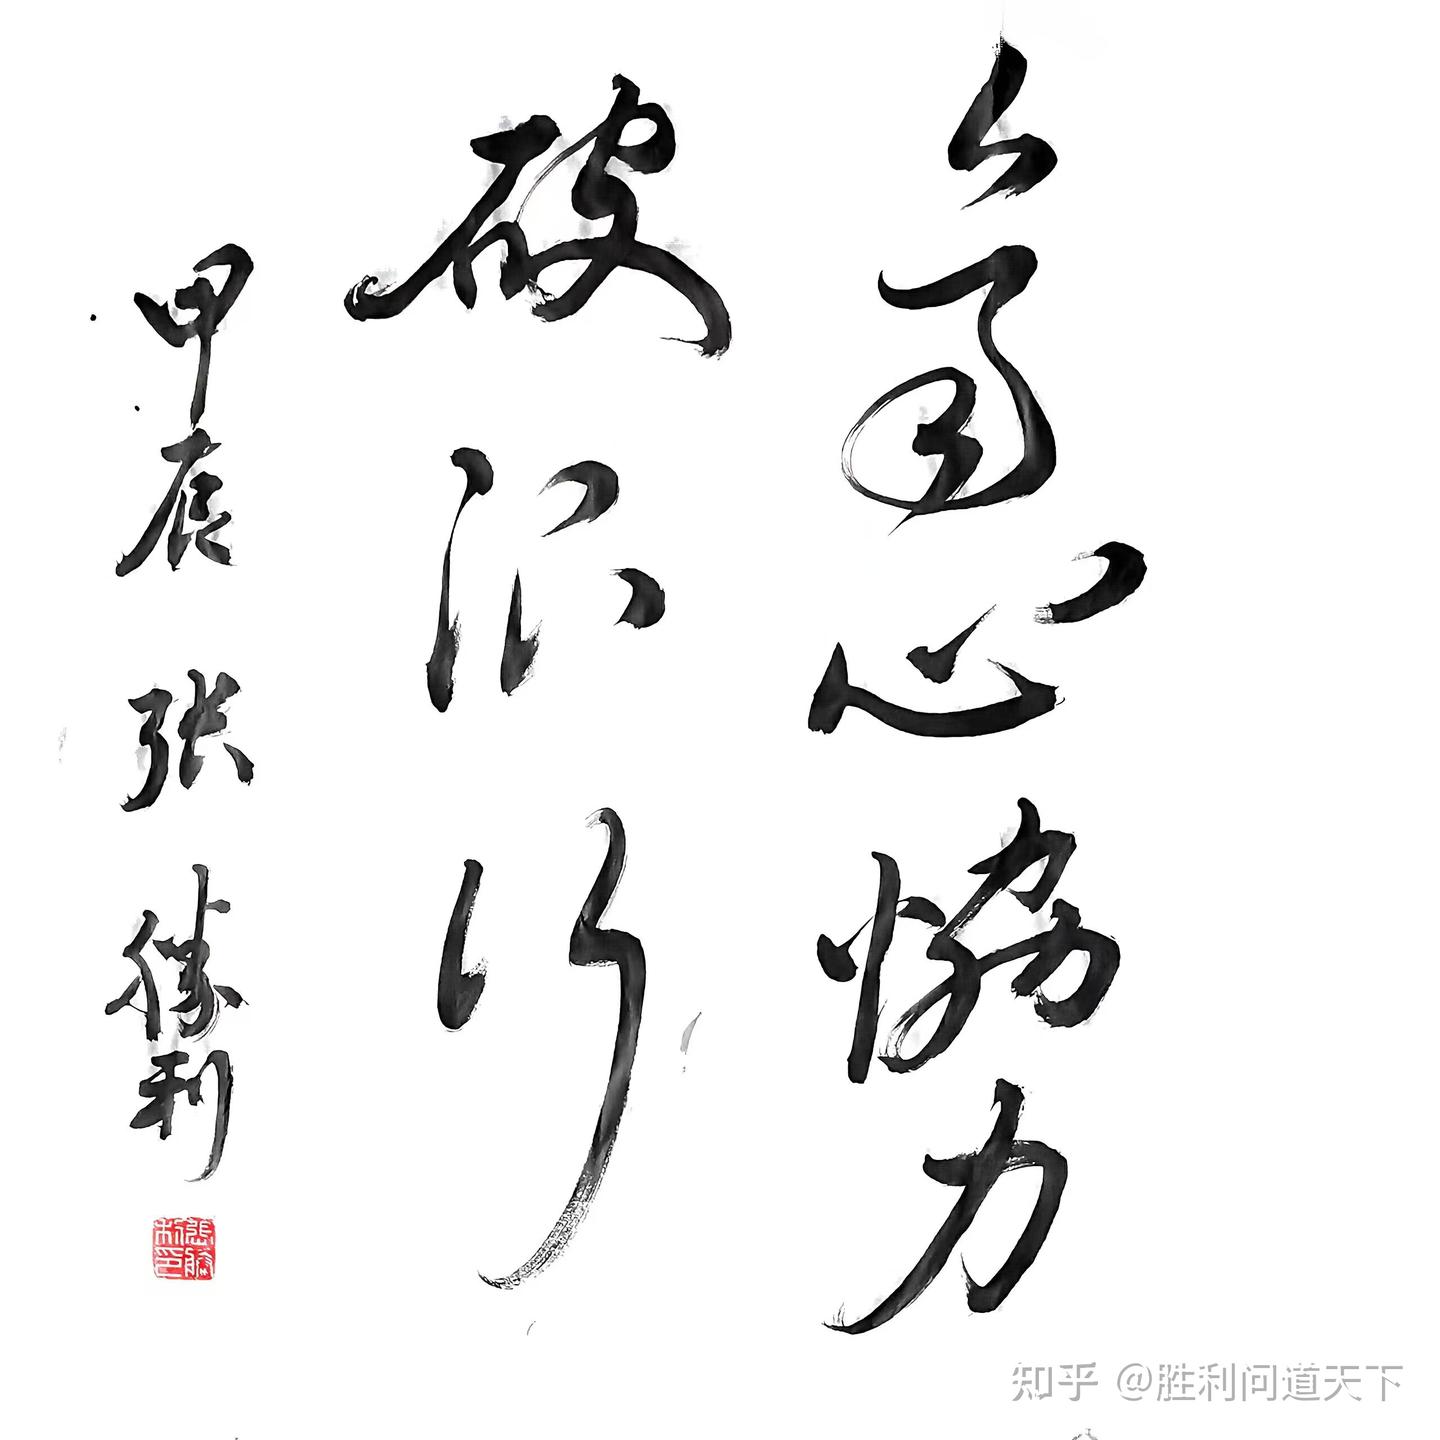 心協力
破冰行
甲辰 张胜利
知乎 @胜利问道天下